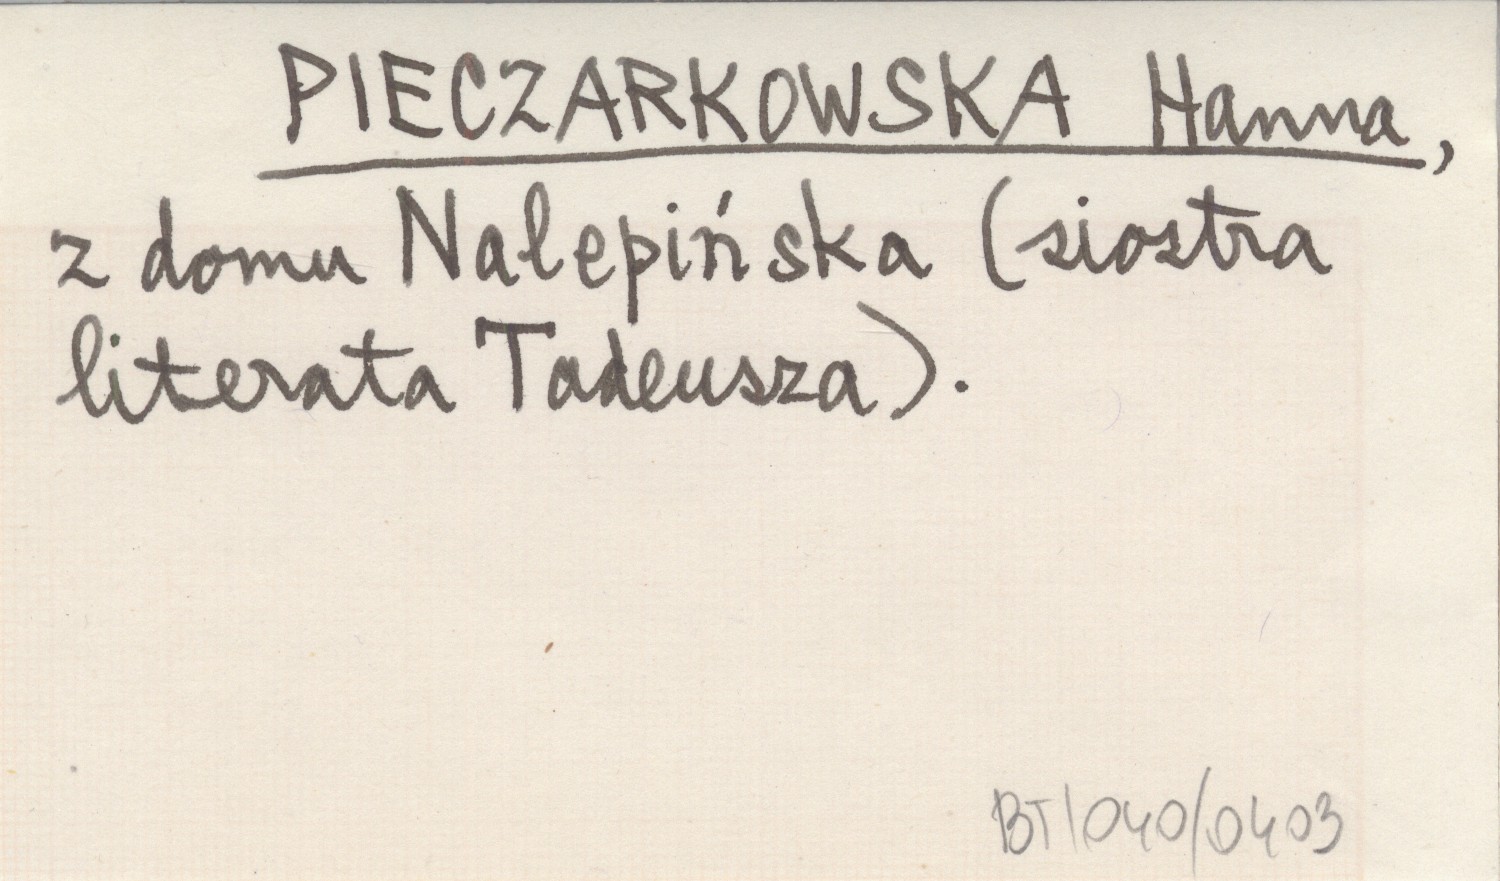 PIECZARKOWSKA Hanna,
z domu Nalepińska (siostra
literata Tadeusza).
BT/040/0403